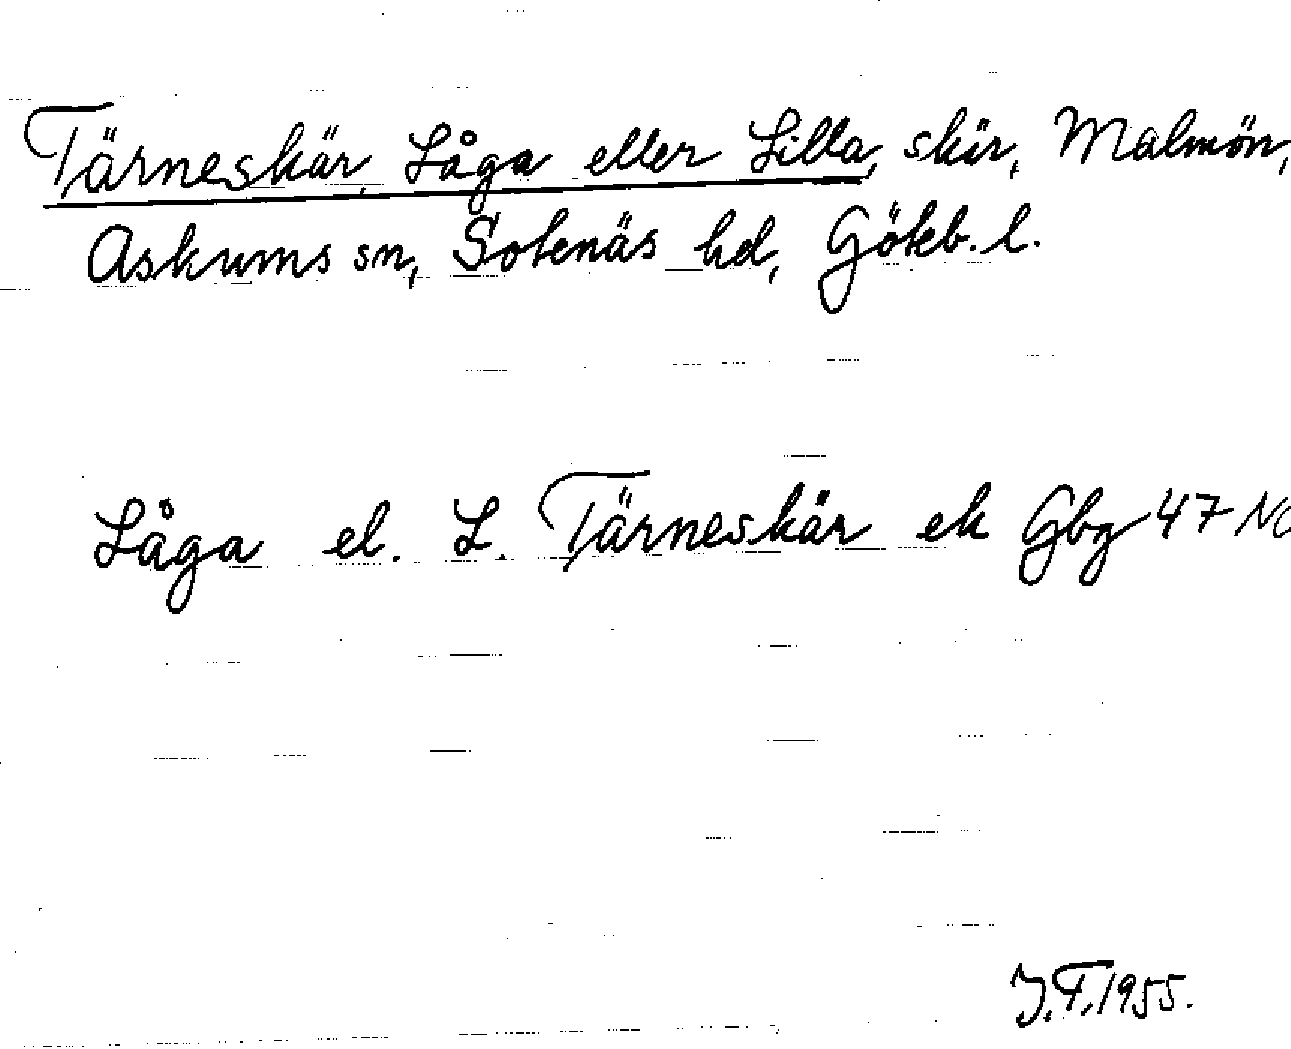 Tärneskär, Låga eller Lilla, skär, Malmön,
Askums sn, Sotenäs hd, Göteb. l.
Låga el. L. Tärneskär ek Gbg 47
J.F. 1955.